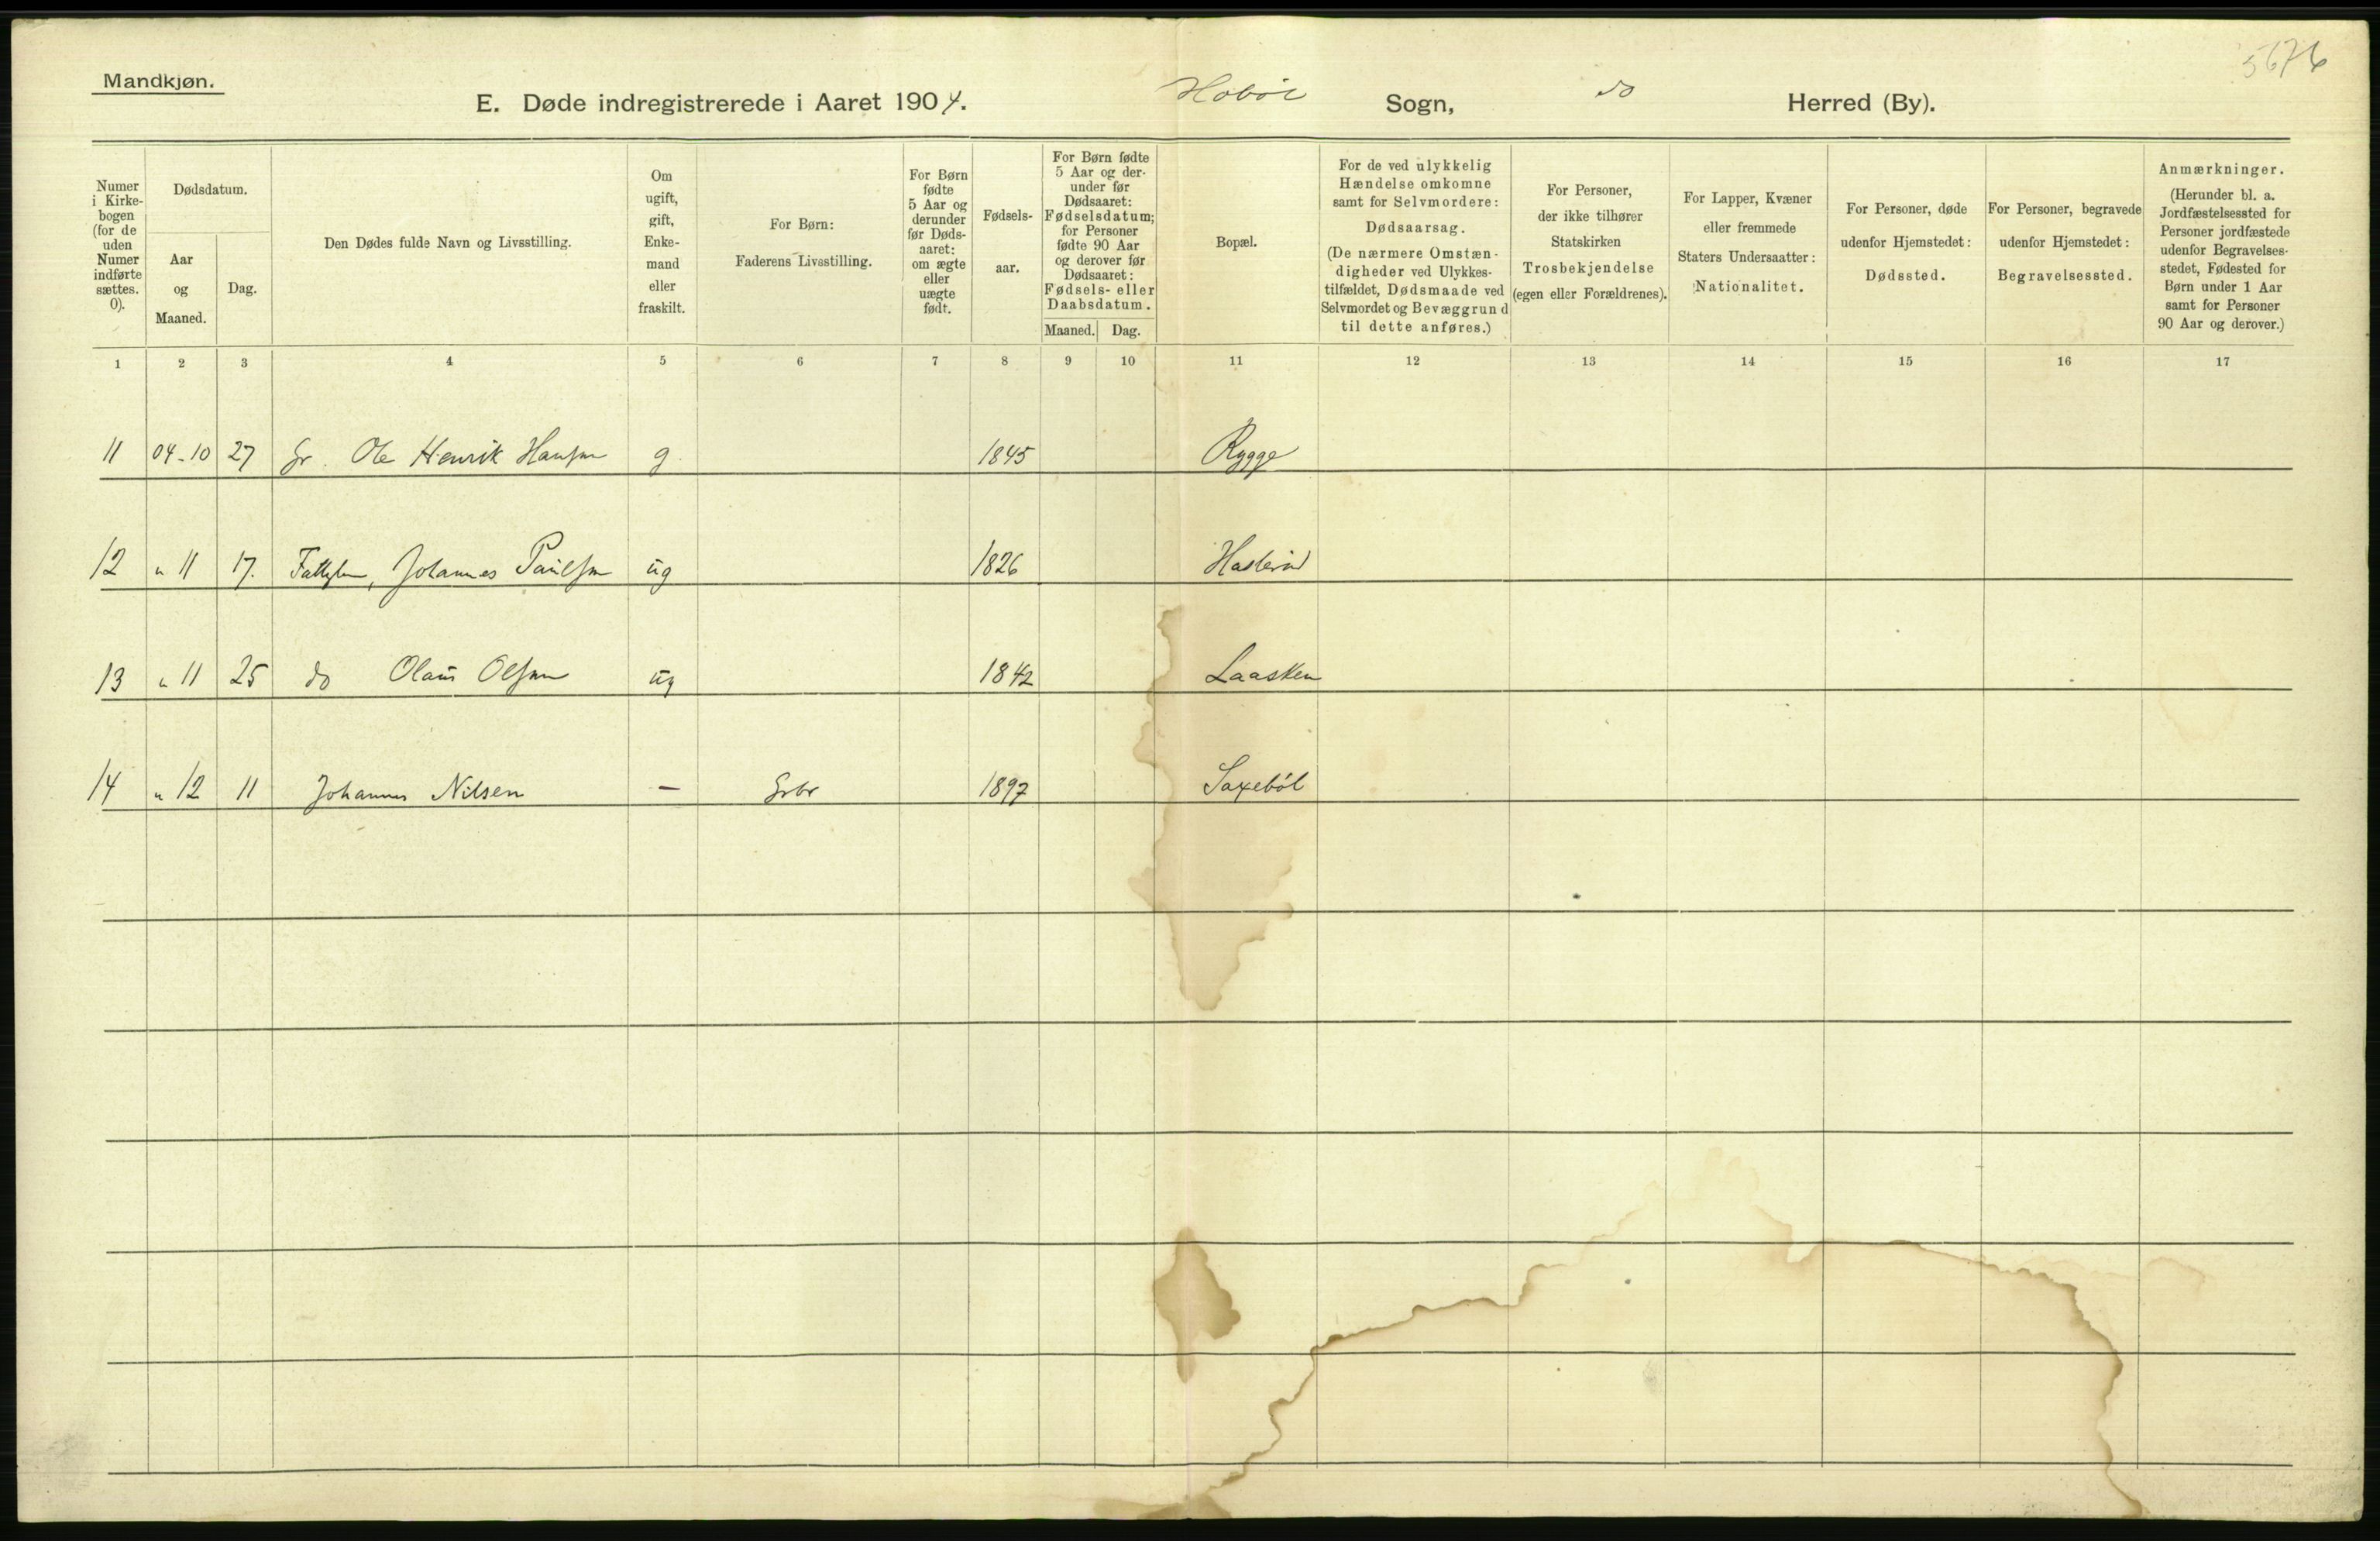 5676
Mandkjøn.
E. Døde indregistrerede i Aaret 1904. Hobøl Sogn, do Herred (By).
Numer i Kirke- bogen (for de uden Numer indførte sættes. 0).
Dødsdatum.
Aar og Maaned.
Dag.
Den Dødes fulde Navn og Livsstilling.
Om ugift, gift, Enke- mand eller fraskilt.
For Børn: Faderens Livsstilling.
For Børn fødte 5 Aar og derunder før Døds- aaret: om ægte eller uægte født.
Fødsels- aar.
For Børn fødte 5 Aar og der- under før Dødsaaret: Fødselsdatum; for Personer fødte 90 Aar og derover før Dødsaaret: Fødsels- eller Daabsdatum.
Maaned. Dag.
Bopæl.
For de ved ulykkelig Hændelse omkomne samt for Selvmordere: Dødsaarsag. (De nærmere Omstæn- digheder ved Ulykkes- tilfældet, Dødsmaade ved Selvmordet og Bevæggrund til dette anføres.)
For Personer, der ikke tilhører Statskirken Trosbekjendelse (egen eller Forældrenes).
For Lapper, Kvæner eller fremmede Staters Undersaatter: Nationalitet.
For Personer, døde udenfor Hjemstedet: Dødssted.
For Personer, begravede udenfor Hjemstedet: Begravelsessted.
Anmærkninger. (Herunder bl. a. Jordfæstelsessted for Personer jordfæstede udenfor Begravelses- stedet, Fødested for Børn under 1 Aar samt for Personer 90 Aar og derover.)
1 2 3 4 5 6 7 8 9 10 11 12 13 14 15 16 17
11 04-10 27 Gr. Ole Henrik Hansen g. 1845 Rygge
12 " 11 17. Johannes Paulsen ug 1826
13 " 11 25 do Olaus Olsen ug 1842 Laasken
14 " 12 11 Johannes Nilsen — Grbr 1897 Saxebøl